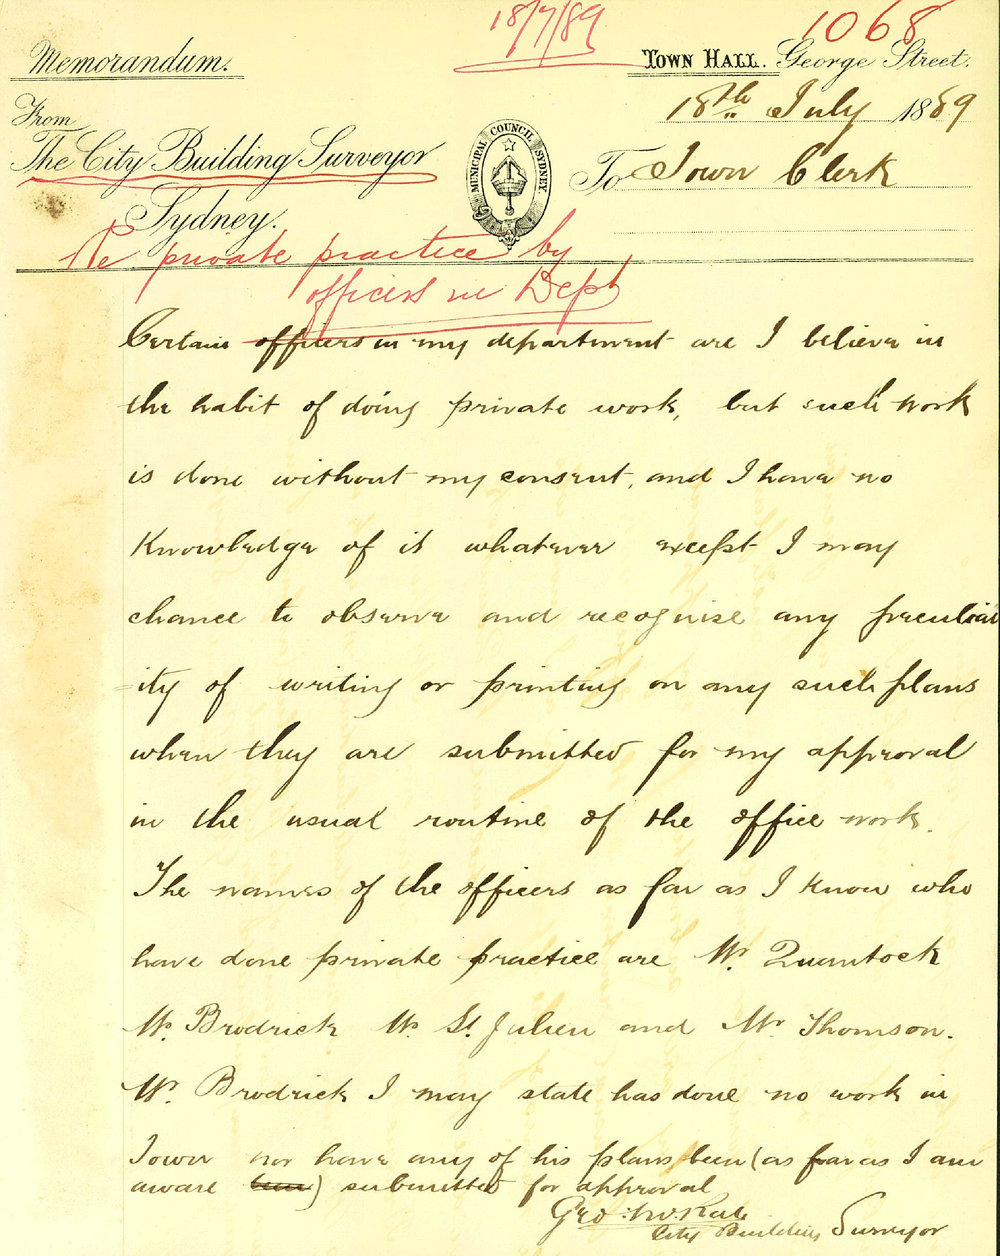 18/7/89
1068
Memorandum.
TOWN HALL. George Street.
18th July 1889
From
The City Building Surveyor
MUNICIPAL COUNCIL SYDNEY.
To Town Clerk
Sydney.
Re private practice by
officers in Dept
Certain officers in my department are I believe in
the habit of doing private work, but such work
is done without my consent, and I have no
Knowledge of it whatever except I may
chance to observe and recognise any peculiar
=ity of writing or printing on any such plans
when they are submitted for my approval
in the usual routine of the office work.
The names of the officers as far as I know who
have done private practice are Mr. Quantock
Mr. Brodrick Mr St. Julien and Mr Thomson.
Mr. Brodrick I may state has done no work in
Town nor have any of his plans been (as far as I am
aware been) submitted for approval
Geo.
City Building Surveyor